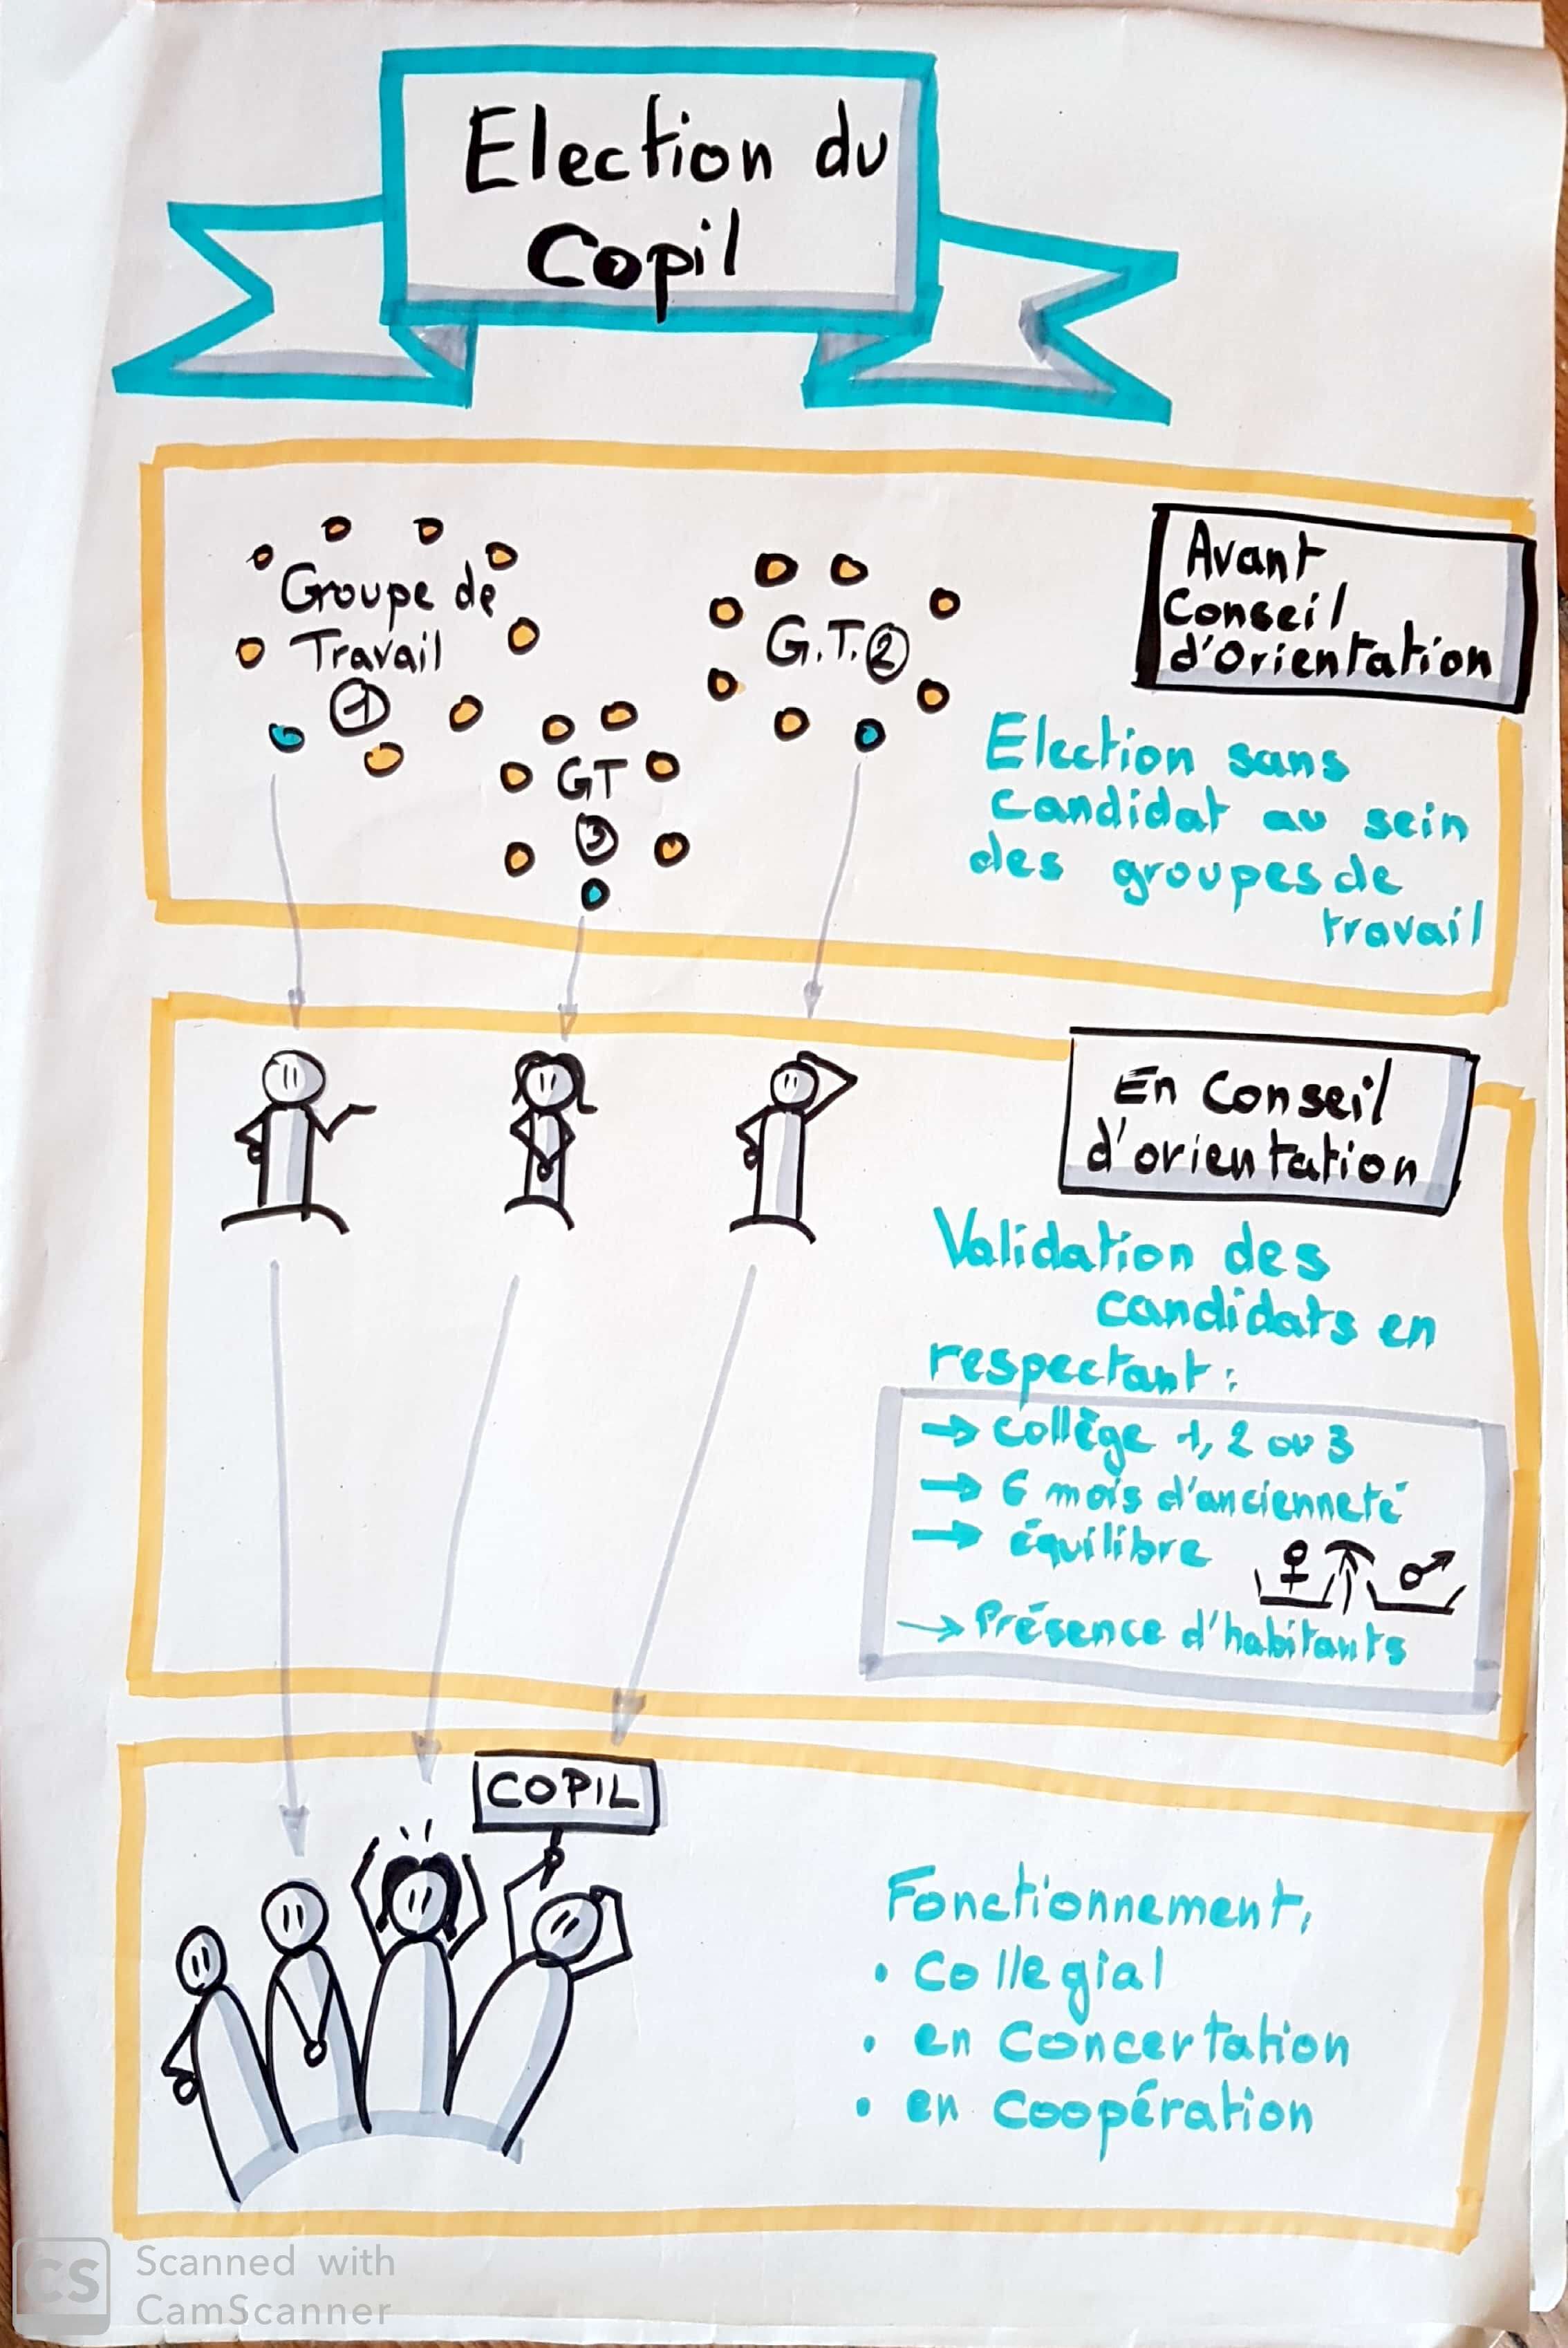 Election du
Copil
Groupe de
Travail
1
G.T. 2
GT
3
Avant
Conseil
d'Orientation
Election sans
candidat au sein
des groupes de
travail
En Conseil
d'orientation
Validation des
candidats en
respectant :
→ Collège 1, 2 ou 3
→ 6 mois d'ancienneté
→ équilibre ♀ ♂
→ Présence d'habitants
COPIL
Fonctionnement,
• Collegial
• en Concertation
• en Coopération
CS
Scanned with
CamScanner